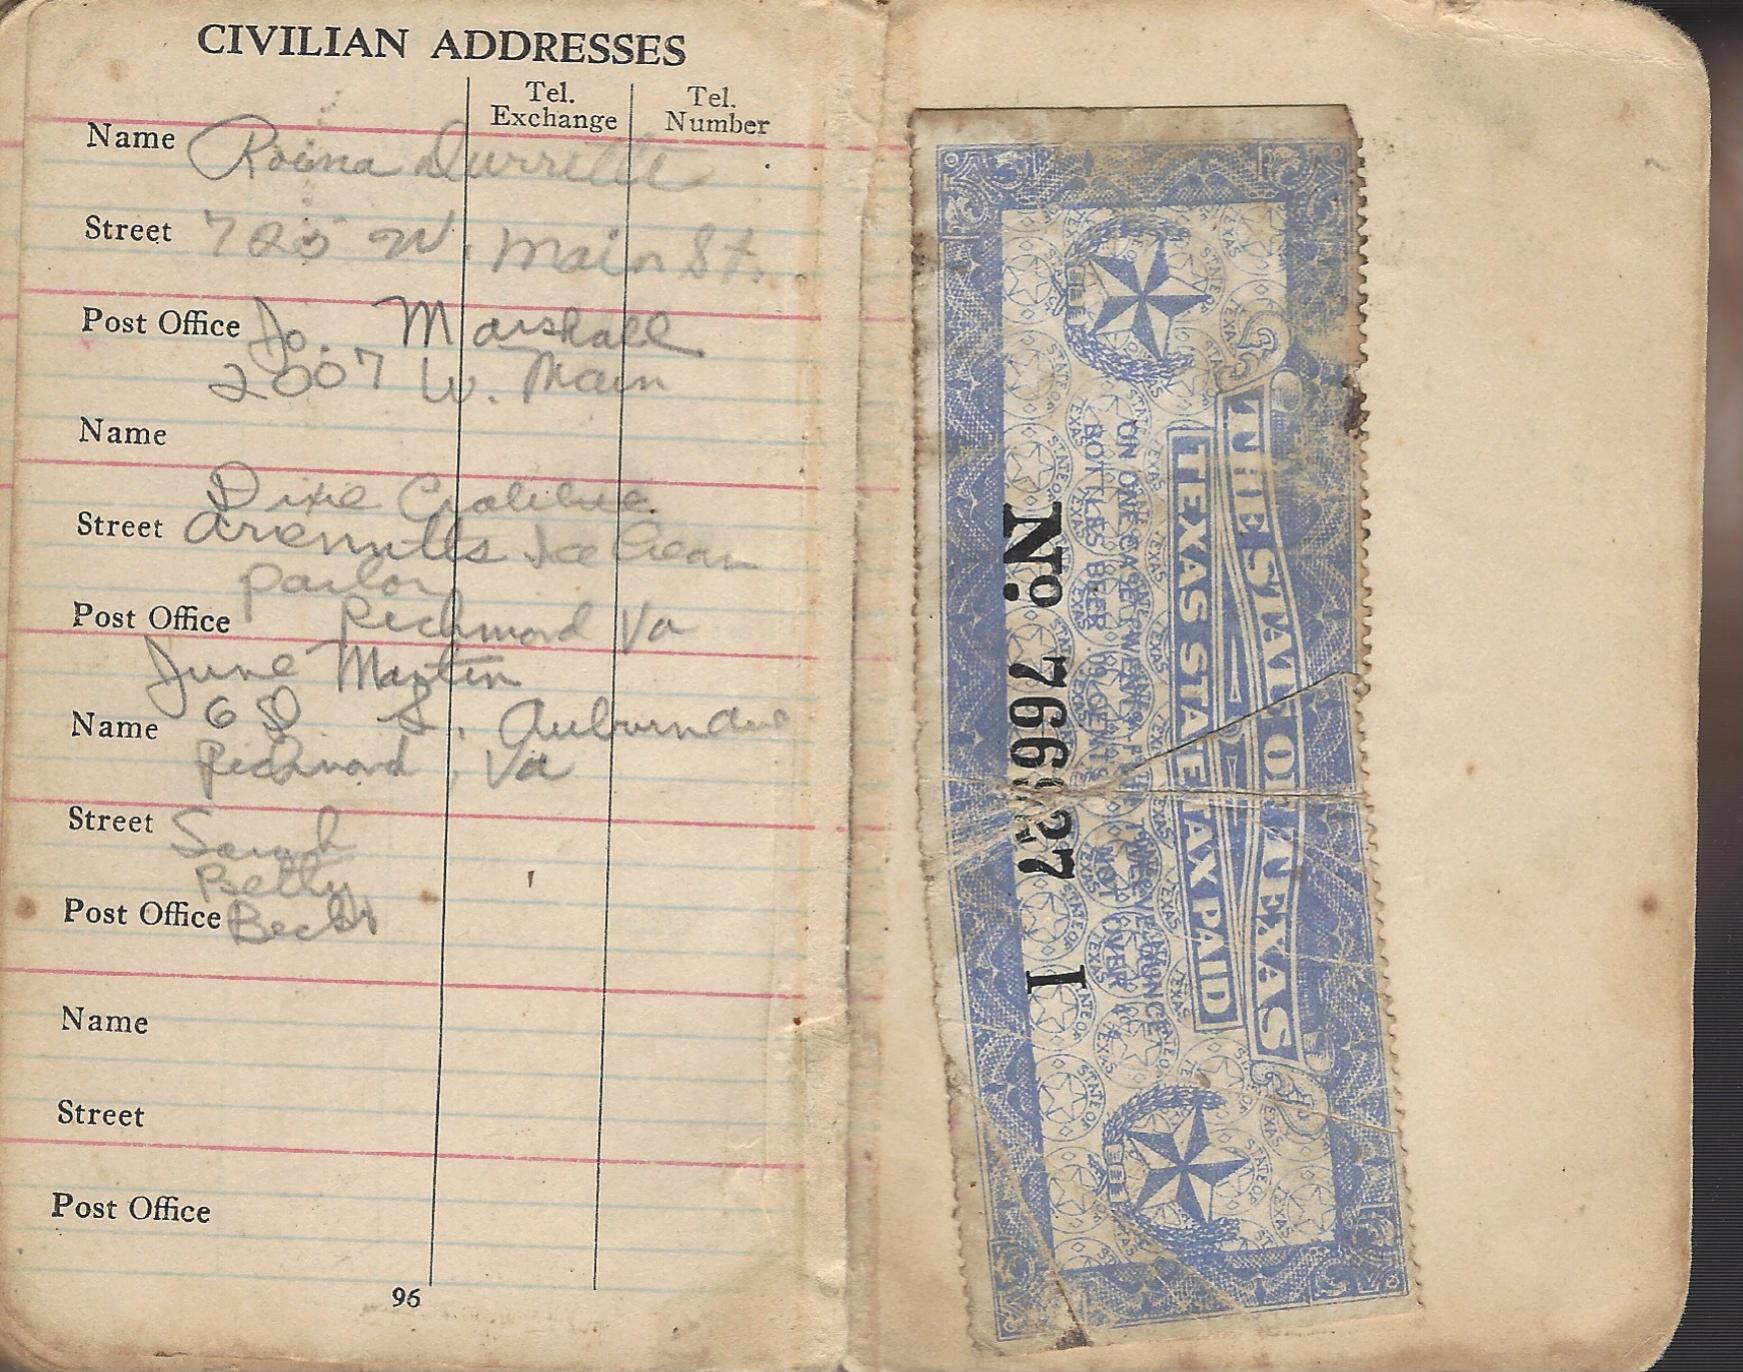 CIVILIAN ADDRESSES
Tel. Exchange
Tel. Number
Name Roena Durrette
Street 725 W. Main St.
Post Office Jo. Marshall
2007 W. Main
Name
Dixie
Street Ice Cream
parlor
Post Office Richmond Va
June Martin
Name S. Auburn ave
Richmond, Va
Street Sarah
Betty
Post Office Becky
Name
Street
Post Office
96
THE STATE OF TEXAS
TEXAS STATE TAX PAID
ON ONE CASE TWENTY FOUR
BOTTLES BEER
TWELVE OUNCE
NOT OVER
No. 766827 I